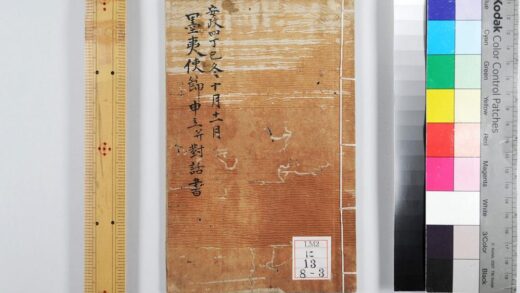 安政四丁巳冬十月十一月
墨夷使節申立并對話書
LM2
に
13
8-3
Kodak
Color Control Patches
Blue
Cyan
Green
Yellow
Red
Magenta
White
3/Color
Black